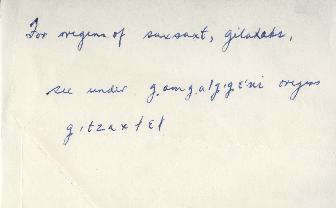 For origins of saxsaxt, giladabs,
see under g.amg.alg.ig.E'ni origins
g.itzaxłEł